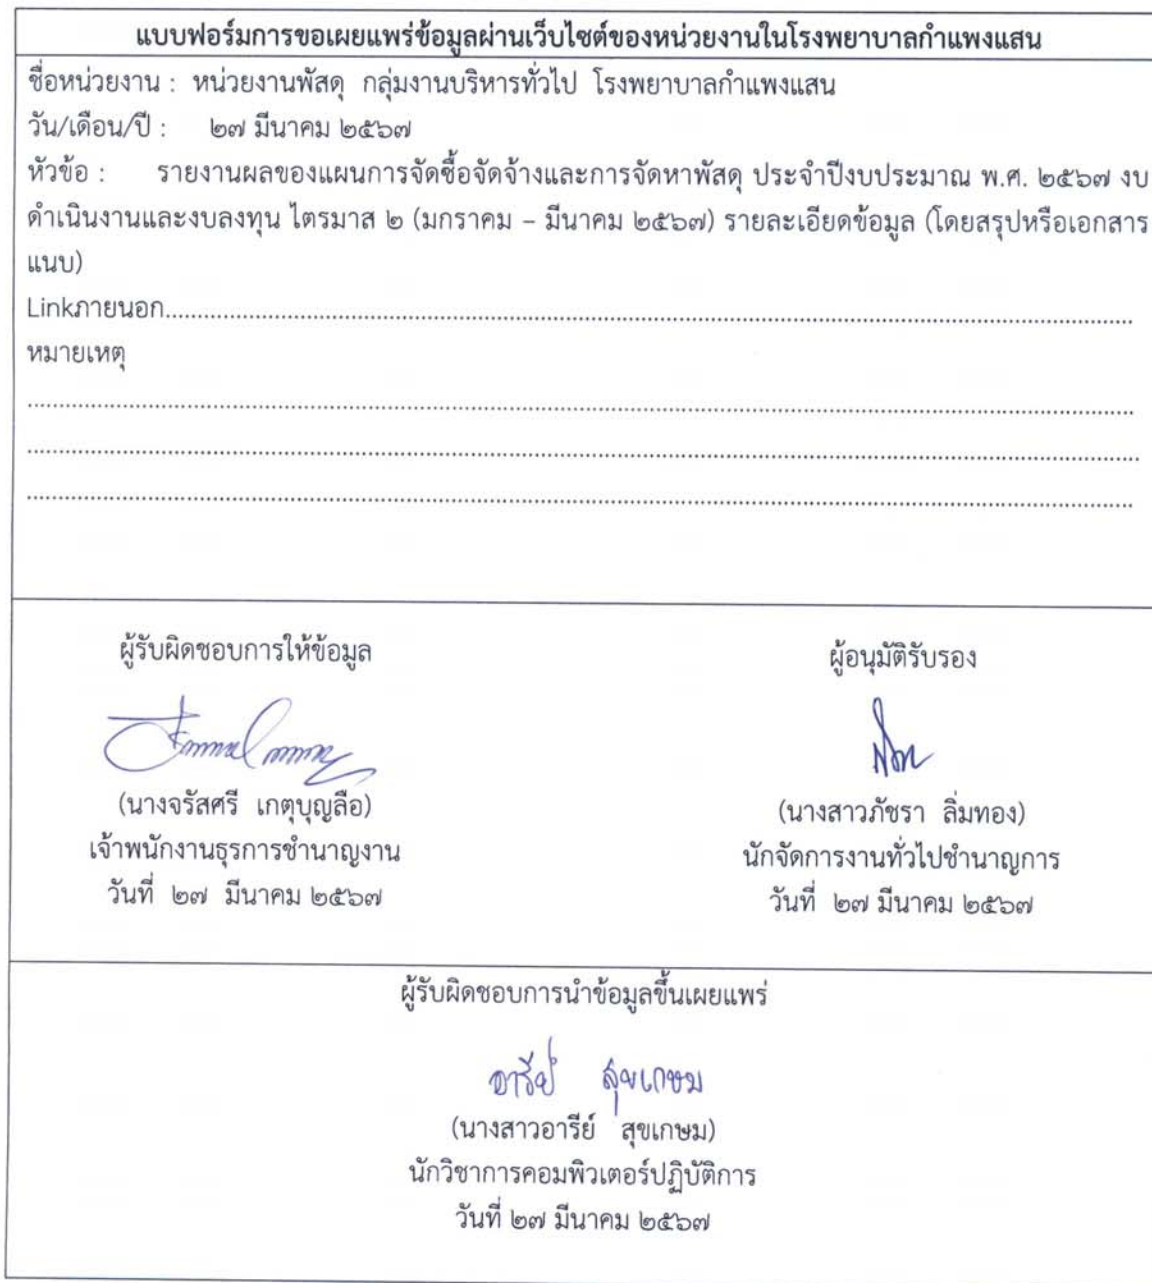 แบบฟอร์มการขอเผยแพร่ข้อมูลผ่านเว็บไซต์ของหน่วยงานในโรงพยาบาลกำแพงแสน
ชื่อหน่วยงาน : หน่วยงานพัสดุ กลุ่มงานบริหารทั่วไป โรงพยาบาลกำแพงแสน
วัน/เดือน/ปี : ๒๗ มีนาคม ๒๕๖๗
หัวข้อ : รายงานผลของแผนการจัดซื้อจัดจ้างและการจัดหาพัสดุ ประจำปีงบประมาณ พ.ศ. ๒๕๖๗ งบ
ดำเนินงานและงบลงทุน ไตรมาส ๒ (มกราคม – มีนาคม ๒๕๖๗) รายละเอียดข้อมูล (โดยสรุปหรือเอกสาร
แนบ)
Linkภายนอก..........................................................................................
หมายเหตุ
..........................................................................................
..........................................................................................
..........................................................................................
ผู้รับผิดชอบการให้ข้อมูล
(นางจรัสศรี เกตุบุญลือ)
เจ้าพนักงานธุรการชำนาญงาน
วันที่ ๒๗ มีนาคม ๒๕๖๗
ผู้อนุมัติรับรอง
(นางสาวภัชรา ลิ่มทอง)
นักจัดการงานทั่วไปชำนาญการ
วันที่ ๒๗ มีนาคม ๒๕๖๗
ผู้รับผิดชอบการนำข้อมูลขึ้นเผยแพร่
อารีย์ สุขเกษม
(นางสาวอารีย์ สุขเกษม)
นักวิชาการคอมพิวเตอร์ปฏิบัติการ
วันที่ ๒๗ มีนาคม ๒๕๖๗